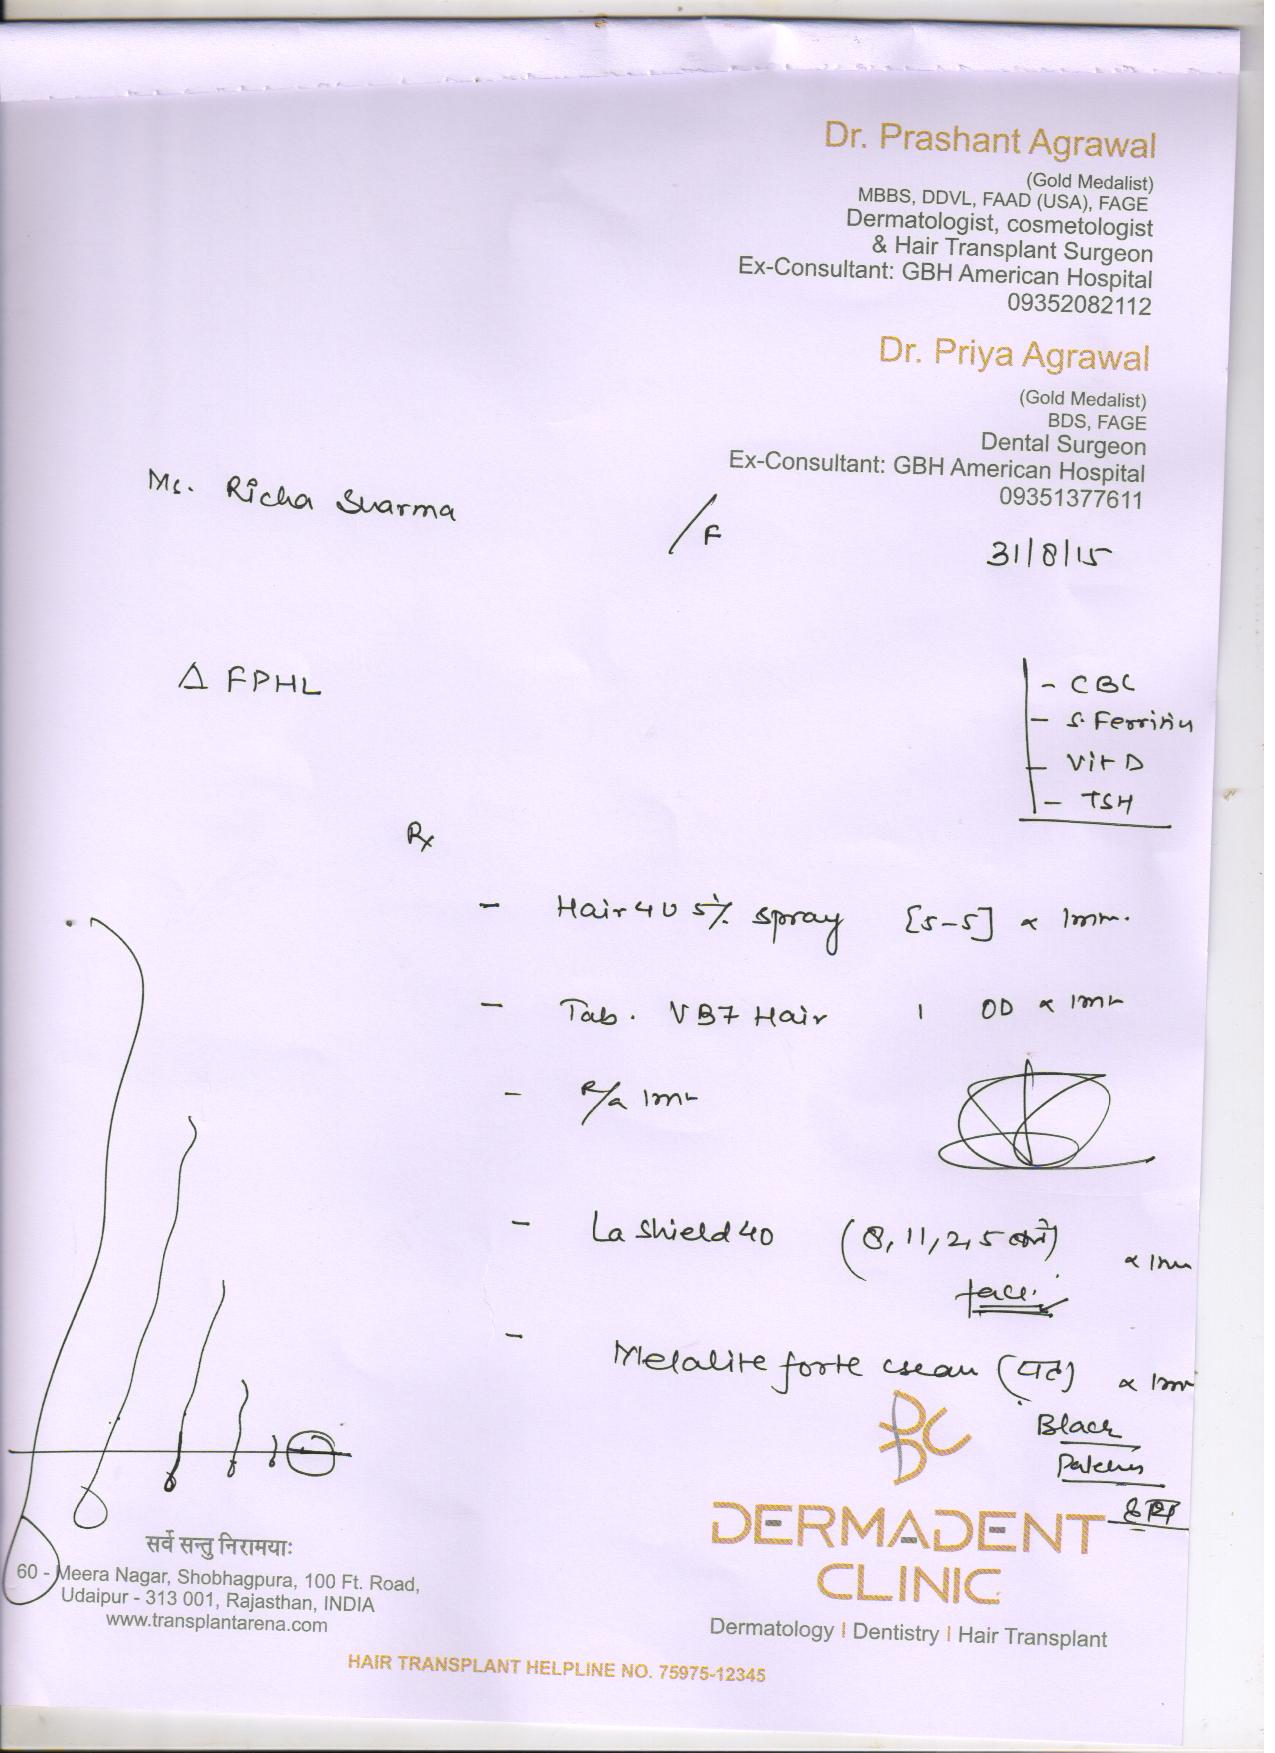 Dr. Prashant Agrawal
(Gold Medalist)
MBBS, DDVL, FAAD (USA), FAGE
Dermatologist, cosmetologist
& Hair Transplant Surgeon
Ex-Consultant: GBH American Hospital
09352082112
Dr. Priya Agrawal
(Gold Medalist)
BDS, FAGE
Dental Surgeon
Ex-Consultant: GBH American Hospital
09351377611
Ms. Richa Sharma /F
31/8/15
Δ FPHL
- CBC
- S. Ferritin
- Vit D
- TSH
Rx
- Hair 4 U 5% spray [5-5] x 1m
- Tab. VB7 Hair 1 OD x 1m
- R/a 1m
- La Shield 40 (8, 11, 2, 5 बजे) x 1m
face
- Melalite forte cream (रात) x 1m
Black
Patches
DERMADENT
CLINIC
Dermatology | Dentistry | Hair Transplant
सर्वे सन्तु निरामयाः
60 - Meera Nagar, Shobhagpura, 100 Ft. Road,
Udaipur - 313 001, Rajasthan, INDIA
www.transplantarena.com
HAIR TRANSPLANT HELPLINE NO. 75975-12345